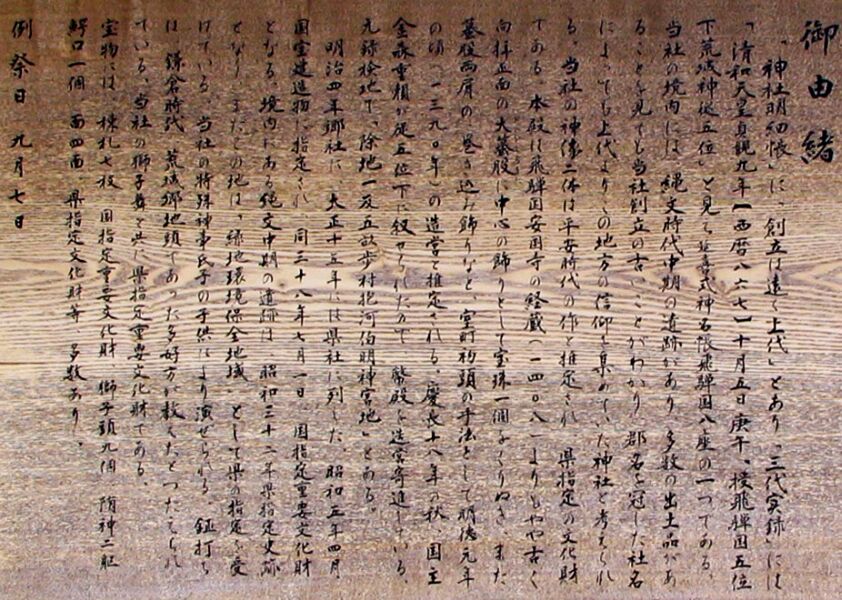 御由緒
「神社明細帳」に、創立は遠く上代、とあり「三代実録」には
「清和天皇貞観九年(西暦八六七)十月五日庚午、授飛騨国五位
下荒城神従五位」と見え延喜式神名帳飛騨国八座の一つである。
当社の境内には、縄文時代中期の遺跡があり、多数の出土品があ
ることを見ても当社創立の古いことがわかり、郡名を冠した社名
によっても上代よりこの地方の信仰を集めていた神社と考えられ
る。当社の神像二体は平安時代の作と推定され、県指定の文化財
である。本殿は飛騨国安国寺の経蔵(一四〇八)よりもやや古く
向拝正面の大蟇股に中心の飾りとして宝珠一個をくりぬき、また
蟇股両肩の巻き込み飾りなど、室町初頭の手法として明徳元年
の頃(一三九〇年)の造営と推定される。慶長十八年の秋、国主
金森重頼が従五位下に叙せられたので 幣殿を造営寄進している。
元禄検地で「除地一反五畝歩村抱河伯明神宮地」とある。
明治四年郷社に、大正十五年には県社に列した。昭和五年四月
国宝建造物に指定され、同三十八年七月一日、国指定重要文化財
ともなる。境内にある縄文中期の遺跡は 昭和三十二年県指定史跡
となり、またこの地は「緑地環境保全地域」として県の指定を受
けている。当社の特殊神事氏子の子供により演ぜられる、鉦打ち
は 鎌倉時代 荒城郷地頭であった多好方が教えたとつたえられ
ている。当社の獅子舞と共に県指定重要文化財である。
宝物には、棟札七枚 国指定重要文化財、獅子頭九個 随神二躯
鰐口一個 面四面 県指定文化財等 多数あり。
例祭日 九月七日